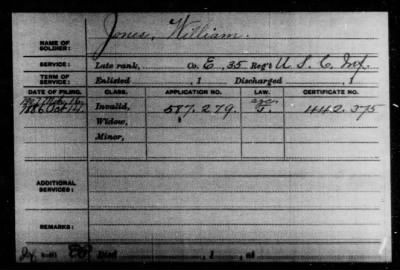 Jones, William.
NAME OF SOLDIER:
SERVICE: Late rank, Co. E, 35 Reg't U. S. C. Inf.
TERM OF SERVICE: Enlisted , 1 Discharged , 1
DATE OF FILING. CLASS. APPLICATION NO. LAW. CERTIFICATE NO.
1886 Oct 14 Invalid, 587.279 F. 442.375
Widow,
Minor,
ADDITIONAL SERVICES:
REMARKS:
Died , 1 , at